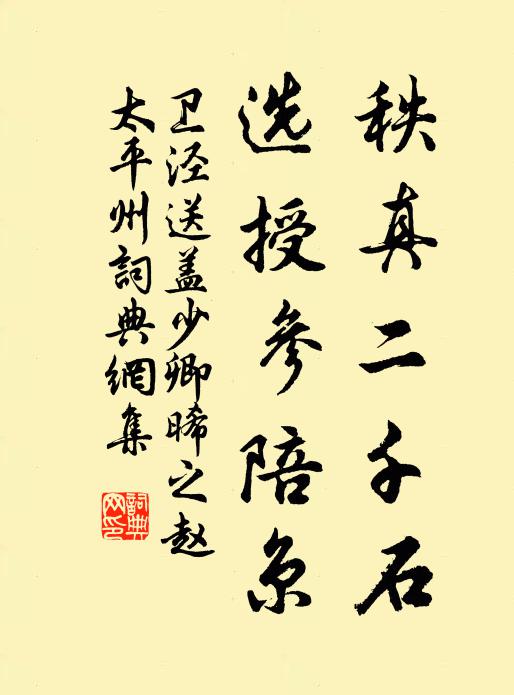 秩真二千石
选授参陪京
卫泾送盖少卿晞之赵
太平州詞典網集
詞典網印